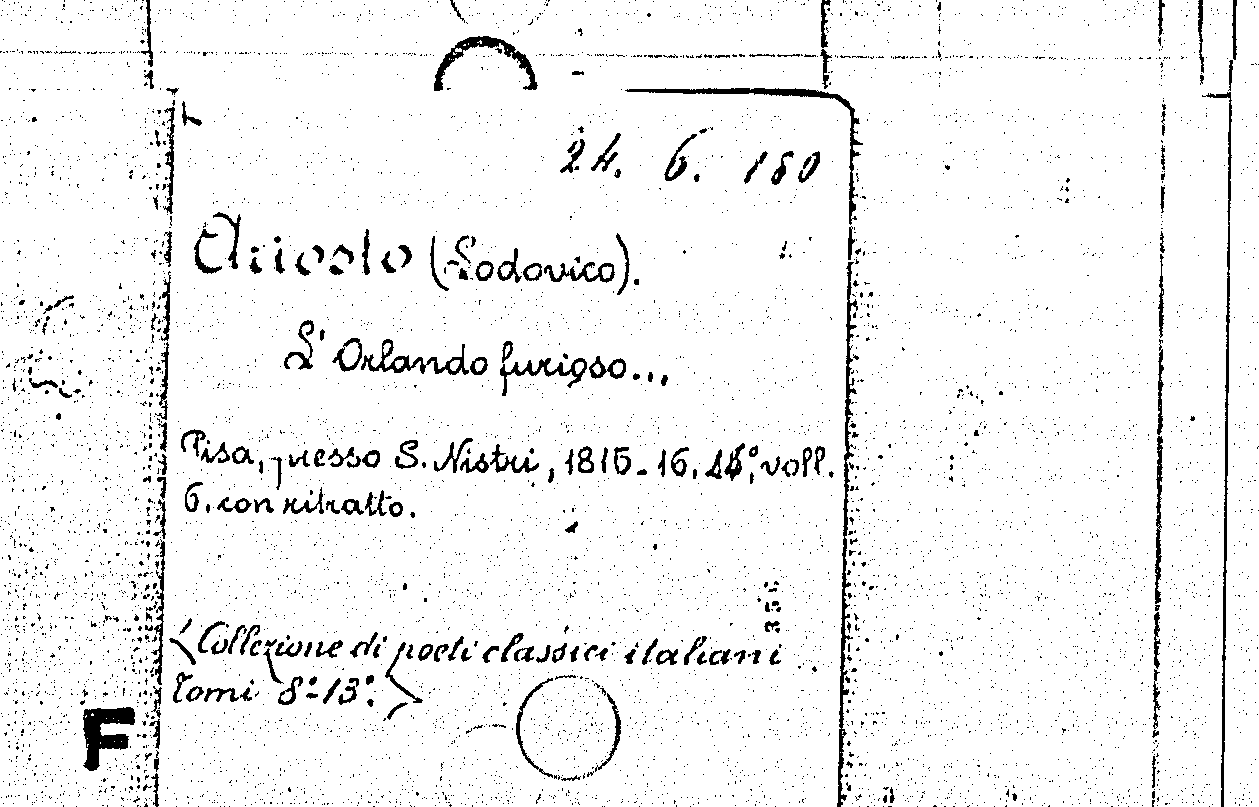 24. 6. 180
Ariosto (Lodovico).
L'Orlando furioso...
Pisa, presso S. Nistri, 1815-16. voll.
6. con ritratto.
<Collezione di poeti classici italiani
Tomi 8°-13°.>
F